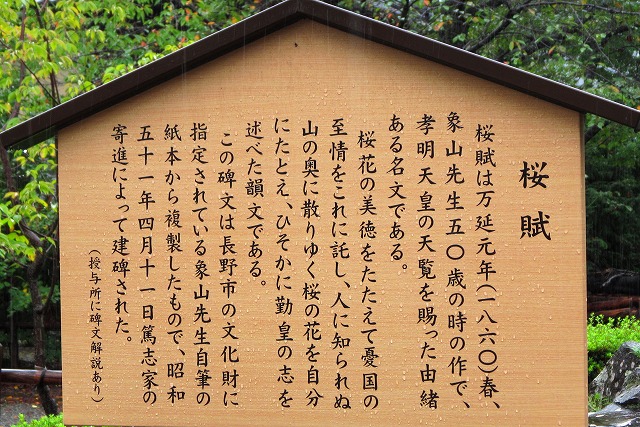 桜賦
桜賦は万延元年(一八六〇)春、
象山先生五〇歳の時の作で、
孝明天皇の天覧を賜った由緒
ある名文である。
桜花の美徳をたたえて憂国の
至情をこれに託し、人に知られぬ
山の奥に散りゆく桜の花を自分
にたとえ、ひそかに勤皇の志を
述べた韻文である。
この碑文は長野市の文化財に
指定されている象山先生自筆の
紙本から複製したもので、昭和
五十一年四月十一日篤志家の
寄進によって建碑された。
(授与所に碑文解説あり)